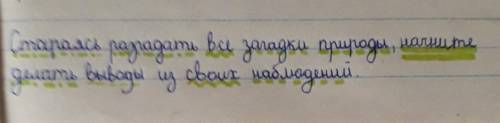 Стараясь разгадать все загадки природы, начните
делать выводы из своих наблюдений.